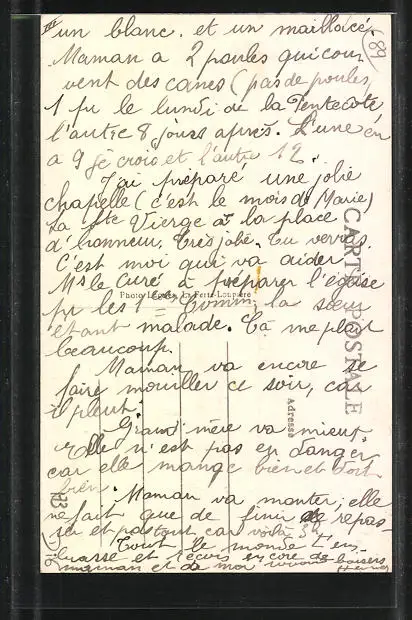 III
un blanc. et un mailloxé. (89)
Maman a 2 poules qui cou
vent des canes (pas de poules,
1 pr le lundi de la Pentecôte
l'autre 8 jours après. L'une en
a 9 je crois et l'autre 12.
J'ai préparé une jolie
chapelle (c'est le mois de Marie)
La Ste Vierge a la place
d'honneur. Très jolie. Tu verras.
C'est moi qui va aider
Mr le Curé à préparer l'église
Photo Légeron, La Ferté-Loupière
pr les 1ères Commin; la sœur
étant malade. Ça me plaît
beaucoup.
Maman va encore se
faire mouiller ce soir, car
il pleut.
Grand'mère va mieux.
Elle n'est pas en danger
car elle mange bien et dort
bien.
Maman va monter; elle
ne fait que de finir de repas-
ser et partout car voilà 3h.
Tout le monde t'em-
brasse et reçois encore de
maman et de moi baisers
CARTE POSTALE
Adresse